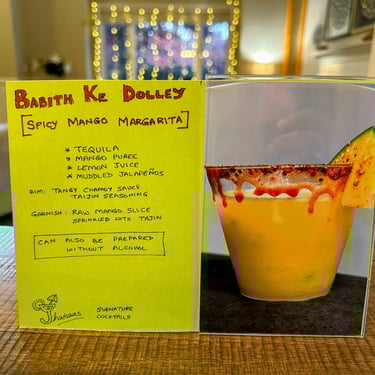 BABITH KE DOLLEY
[SPICY MANGO MARGARITA]
* TEQUILA
* MANGO PUREE
* LEMON JUICE
* MUDDLED JALAPEÑOS
RIM: TANGY CHAMOY SAUCE
TAJIN SEASONING
GARNISH: RAW MANGO SLICE
SPRINKLED WITH TAJIN
CAN ALSO BE PREPARED
WITHOUT ALCOHOL
Jhakaas
SIGNATURE
COCKTAILS